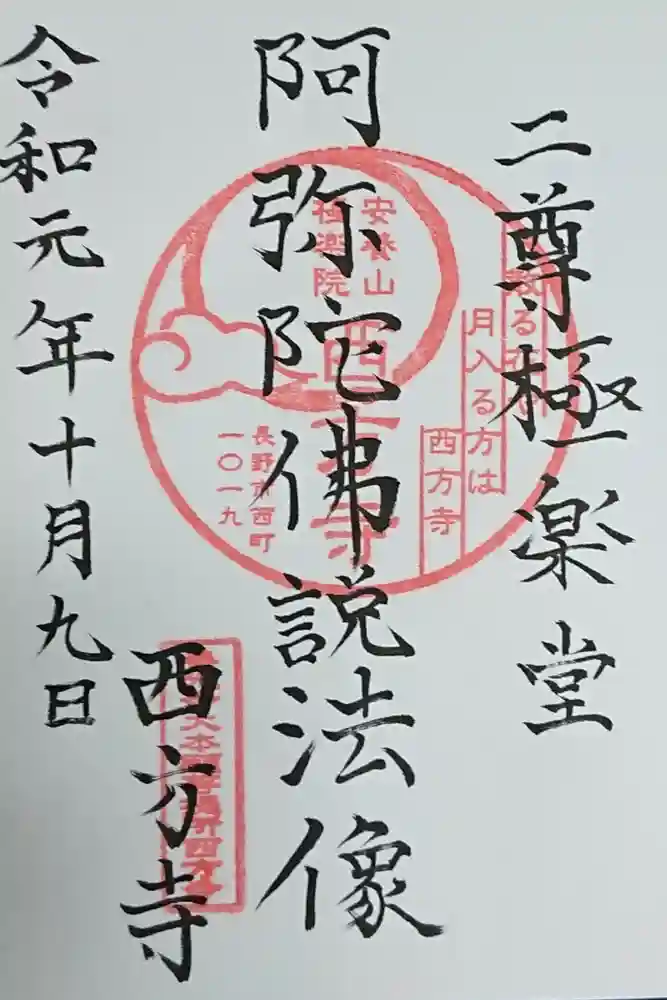 二尊極楽堂
阿弥陀佛説法像
西方寺
令和元年十月九日
安養山
極楽院
西方寺
月入る方は
西方寺
長野市西町
一〇一九